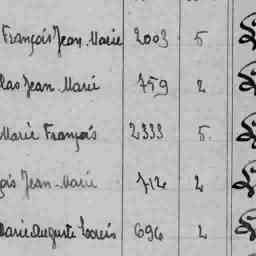 François Jean Marie 2003 5
las Jean Marie 759 2
Marie François 2333 5
çois Jean-Marie 712 2
Marie Auguste Louis 696 2